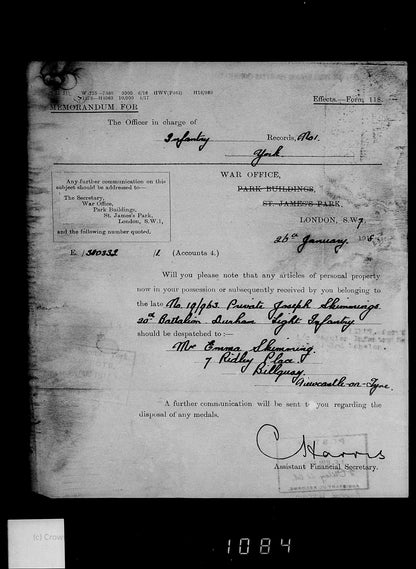 MEMORANDUM FOR
Effects.—Form 118.
The Officer in charge of
Infantry Records, No 1.
York
WAR OFFICE,
PARK BUILDINGS,
ST. JAMES'S PARK,
LONDON, S.W. 7
Any further communication on this
subject should be addressed to—
The Secretary,
War Office,
Park Buildings,
St. James's Park,
London, S.W.1,
and the following number quoted.
26th January 1918
E (Accounts 4.)
Will you please note that any articles of personal property
now in your possession or subsequently received by you belonging to
the late No. Private Joseph Skimmings
20th Battalion Durham Light Infantry
should be despatched to—
Emma Skimming.
7 Ridley Place
Billquay
Newcastle-on-Tyne.
A further communication will be sent to you regarding the
disposal of any medals.
C Harris
Assistant Financial Secretary.
(c) Crow
1084